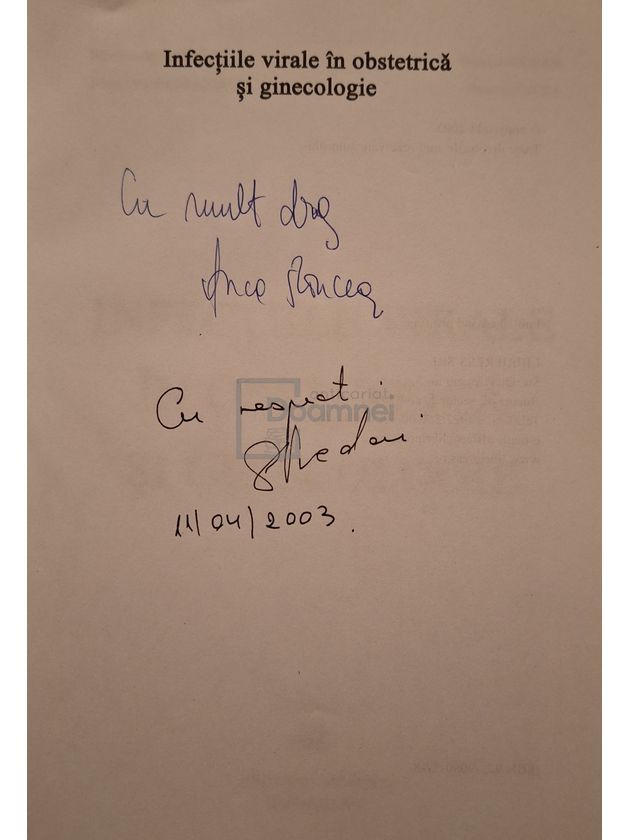 Infecțiile virale în obstetrică
și ginecologie
Cu mult drag
Anca
Cu respect
11/04/2003.
anticariat
Doamnei